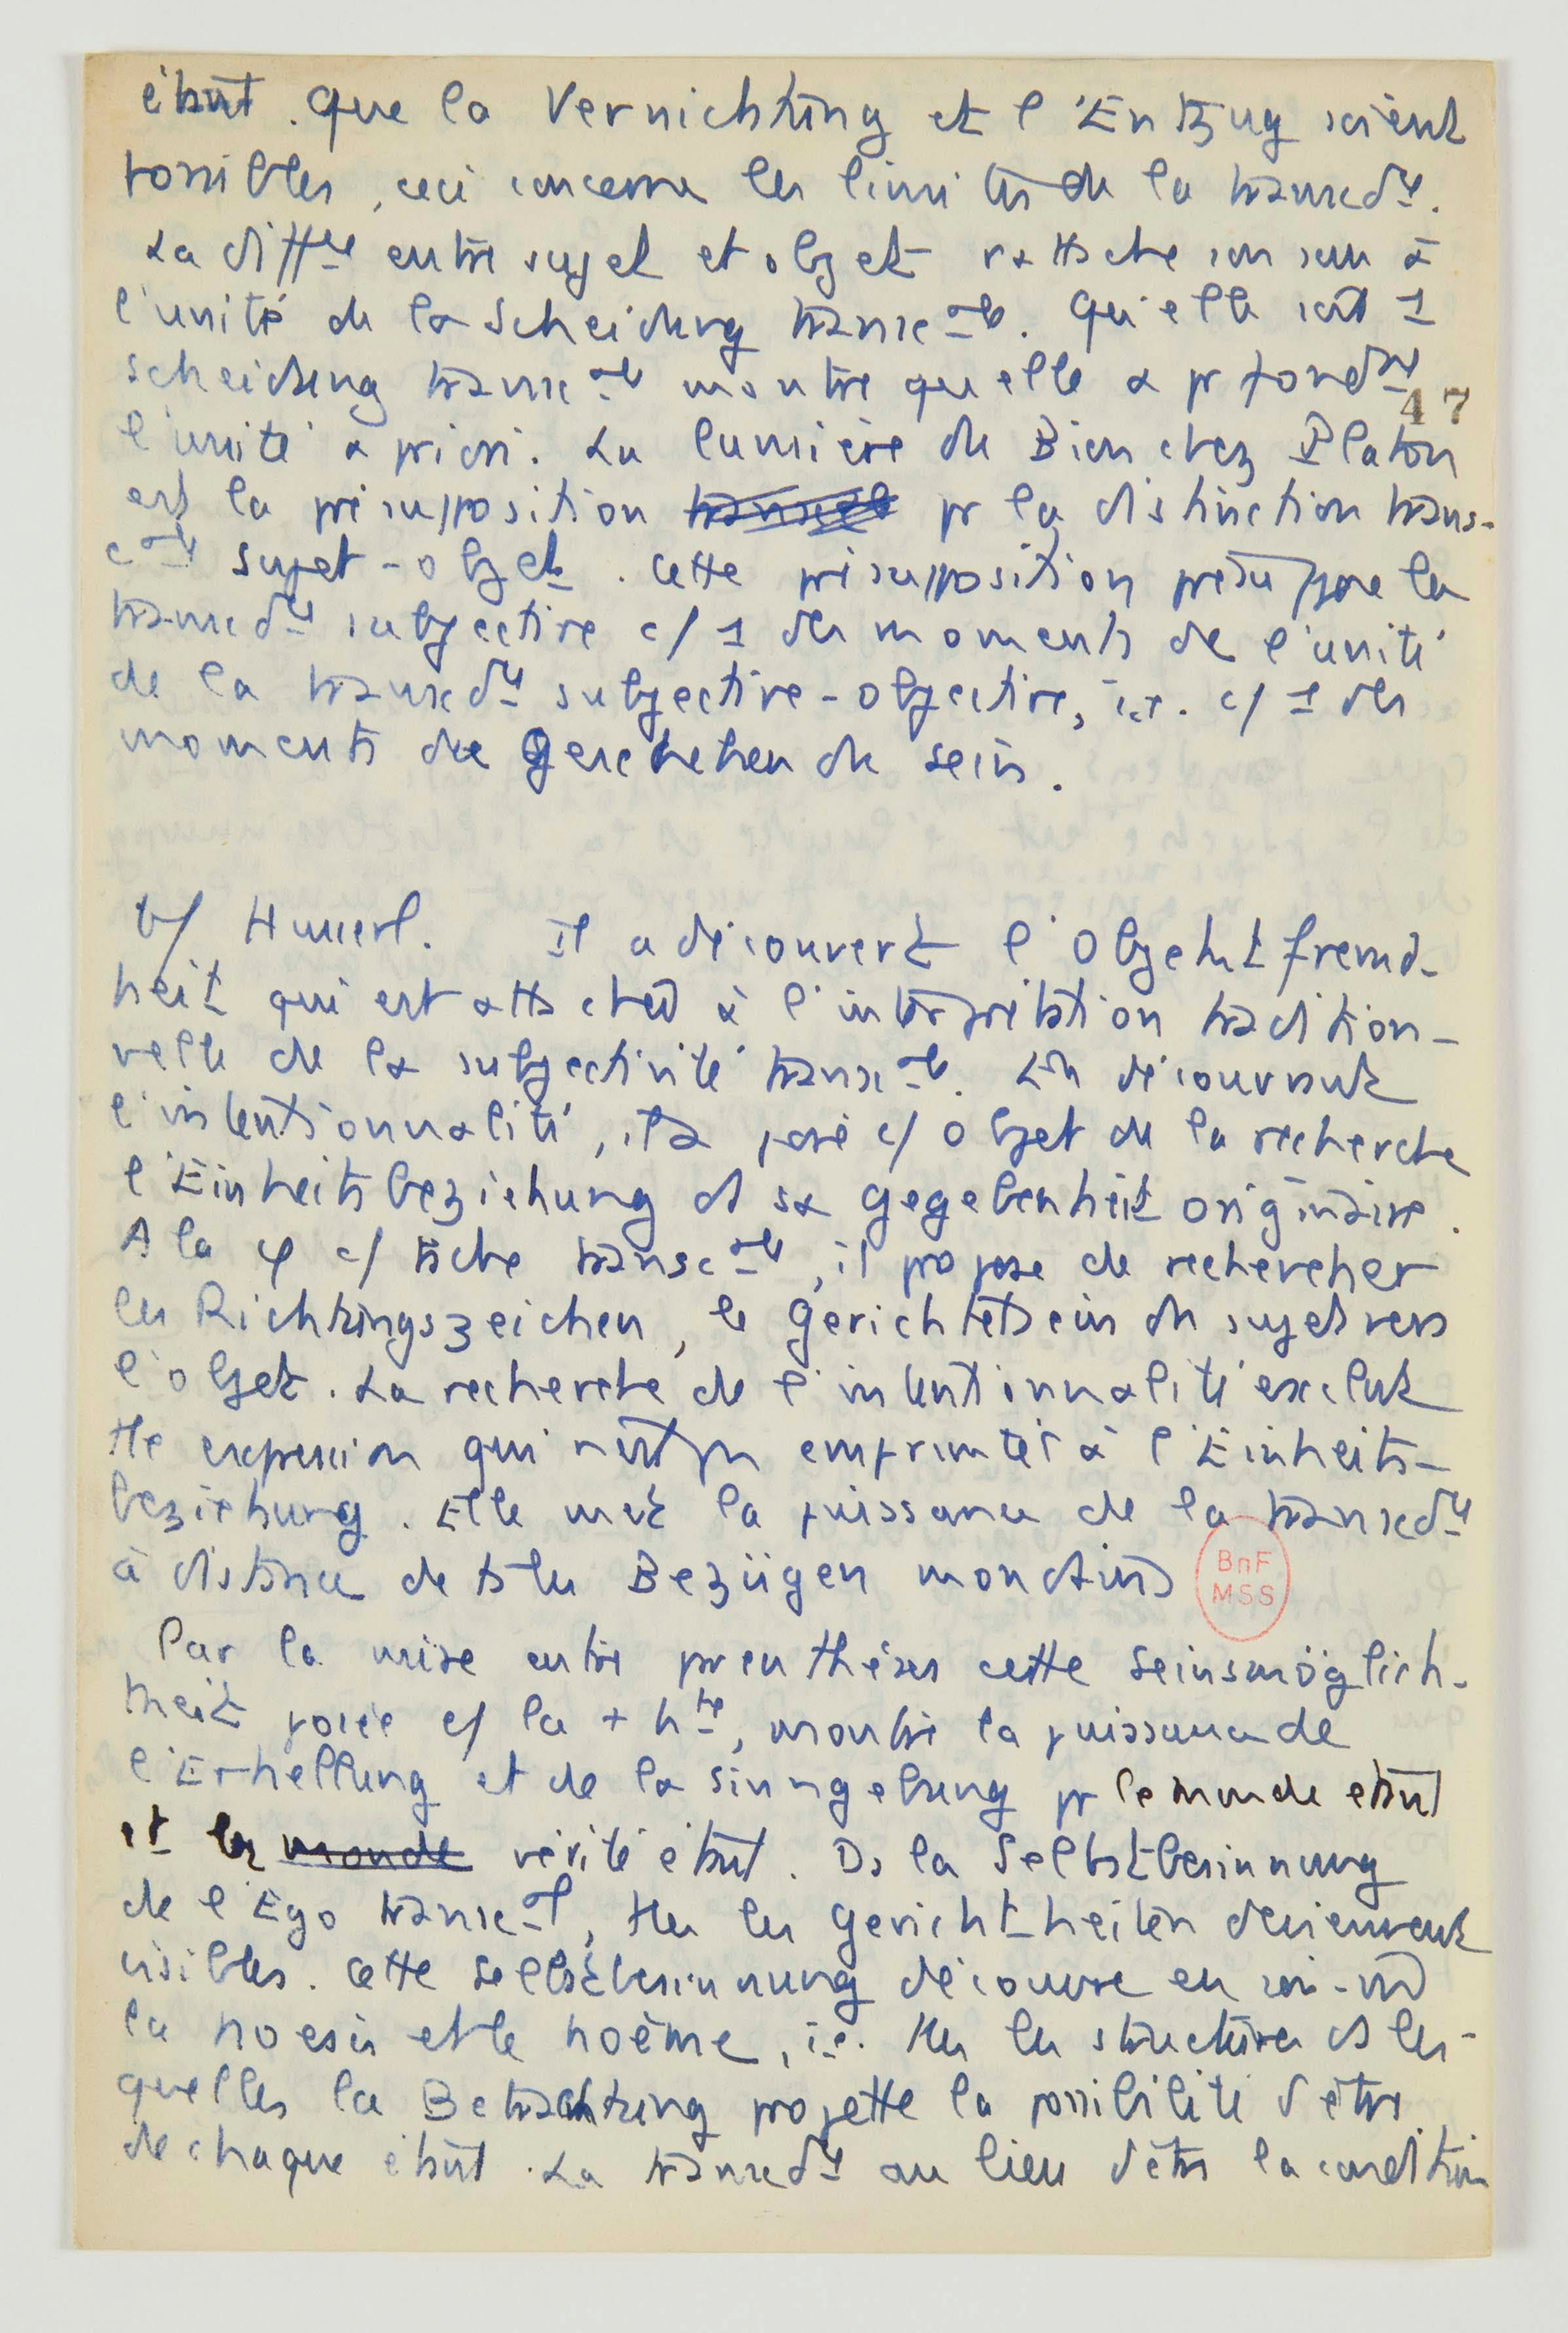 étant. Que la Vernichtung et l'Entzug soient
possibles, ceci concerne les limites de la transcdce.
La diffce entre sujet et objet rattache son sens à
l'unité de la Scheidung transcale. Qu'elle soit 1
scheidung transcale montre qu'elle a pr fondt
47
l'unité a priori. La lumière du Bien chez Platon
est la présupposition pr la distinction trans-
cale sujet-objet. Cette présupposition présuppose la
transcdce subjective c/ 1 des moments de l'unité
de la transcdce subjective-objective, i.e. c/ 1 des
moments du Geschehen du sein.
b/ Husserl. Il a découvert l'Objektfremd-
heit qui est attachée à l'interprétation tradition-
nelle de la subjectivité transcale. En découvrant
l'intentionnalité, il a posé c/ objet de la recherche
l'Einheitsbeziehung ds sa Gegebenheit originaire.
A la φ c/ tâche transcale, il propose de rechercher
les Richtungszeichen, le Gerichtetsein du sujet vers
l'objet. La recherche de l'intentionnalité exclut
tte expression qui n'est pas empruntée à l'Einheits-
beziehung. Elle met la puissance de la transcdce
à distance de ts les Bezügen mondains
BnF
MSS
Par la mise entre parenthèses cette Seinsmöglich-
keit posée c/ la + hte, montre la puissance de
l'Erhellung et de la Sinngebung pr le monde étant
et les monde vérité étant. Ds la Selbstbesinnung
de l'Ego transcal, ttes les Gerichtheiten deviennent
visibles. Cette Selbstbesinnung découvre en soi-m̂
la noesis et le noème, i.e. ttes les structures ds les-
quelles la Betrachtung projette la possibilité d'être
de chaque étant. La transcdce au lieu d'être la condition